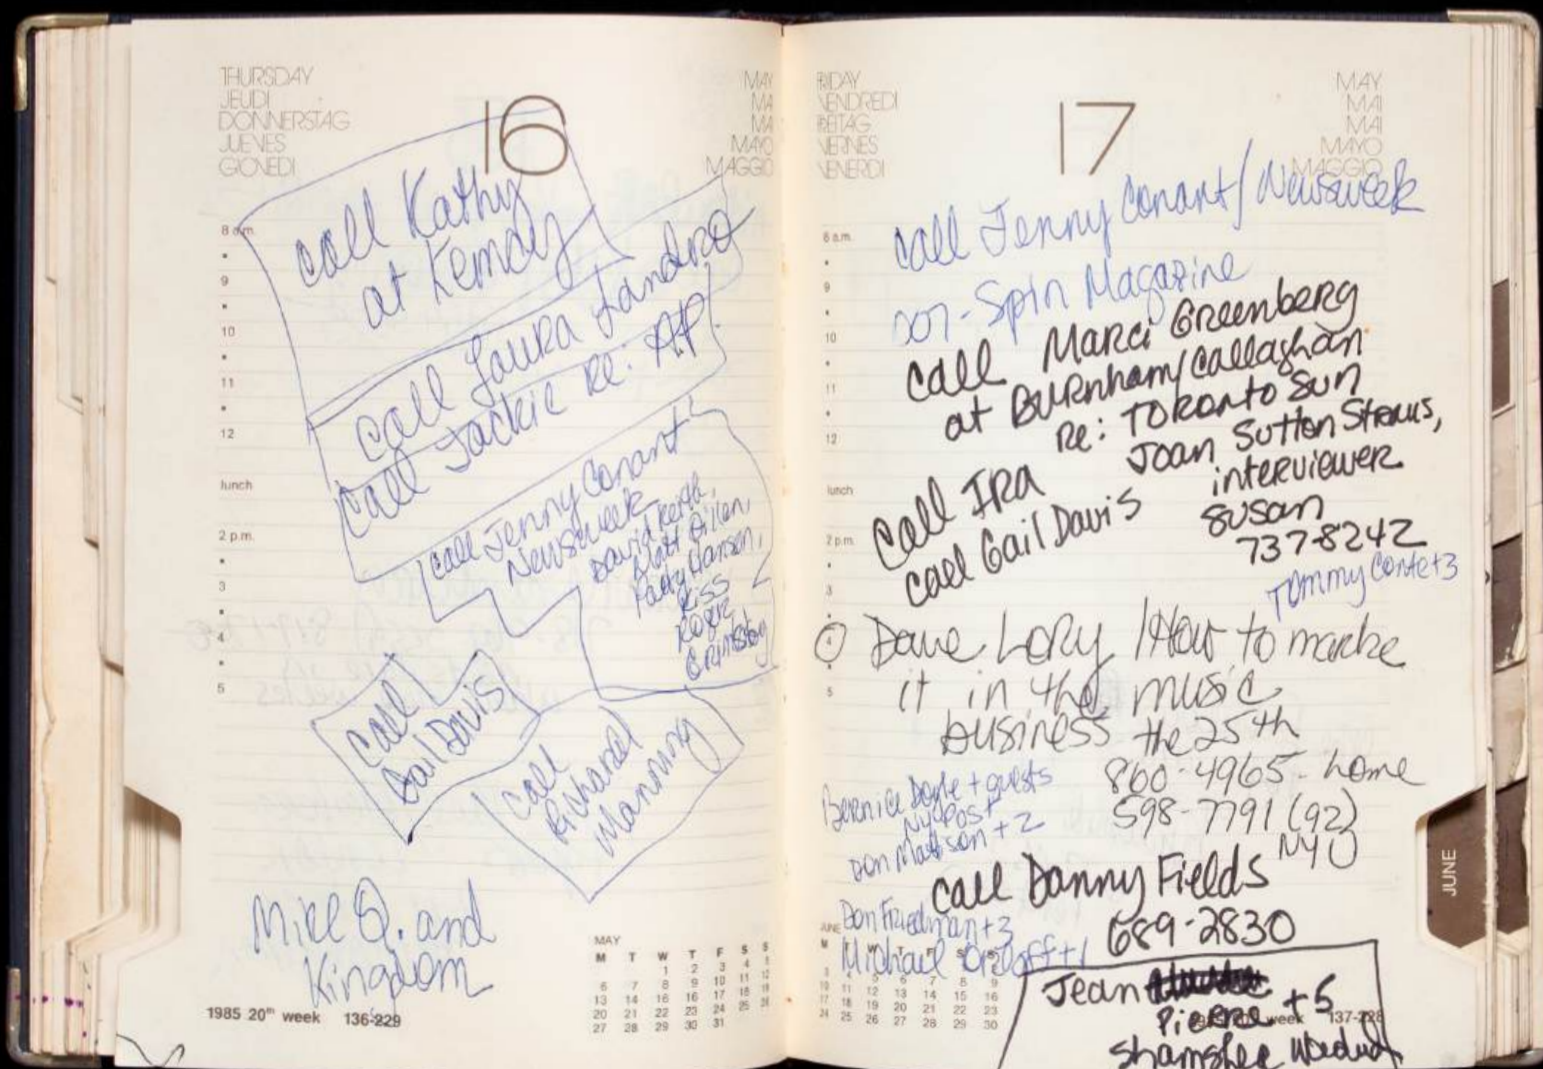 THURSDAY
JEUDI
DONNERSTAG
JUEVES
GIOVEDI
16
MAY
MA
MA
MAYO
MAGGIO
8 a.m.
9
10
11
12
lunch
2 p.m.
3
4
5
call Kathy
at
call Laura Landro
call Jackie Re: AP
call Jenny Conant
Newsweek
David Keith,
Matt Dillon,
Patty Hansen,
Kiss
Roger
Grimsby
call
Gail Davis
call
Richard
Manning
Mike Q. and
Kingdom
MAY
M T W T F S S
1 2 3 4 5
6 7 8 9 10 11 12
13 14 15 16 17 18 19
20 21 22 23 24 25 26
27 28 29 30 31
1985 20th week 136-229
FRIDAY
VENDREDI
FREITAG
VIERNES
VENERDI
17
MAY
MAI
MAI
MAYO
MAGGIO
8 a.m.
9
10
11
12
lunch
2 p.m.
3
4
5
call Jenny Conant/Newsweek
Spin Magazine
call Marci Greenberg
at Burnham/Callaghan
Re: Toronto Sun
Joan Sutton Straus,
interviewer
call Ira
call Gail Davis
Susan
737-8242
Tommy Conte+3
Dave Lory / How to make
it in the music
business the 25th
860-4965-home
598-7791 (92)
NYU
Bernice Doyle + guests
NY Post
Don Mattson + 2
call Danny Fields
689-2830
Don Friedman+3
Michael +1
Jean
Pierre +5
Shamsher
JUNE
M T W T F S S
3 4 5 6 7 8 9
10 11 12 13 14 15 16
17 18 19 20 21 22 23
24 25 26 27 28 29 30
week 137-228
JUNE